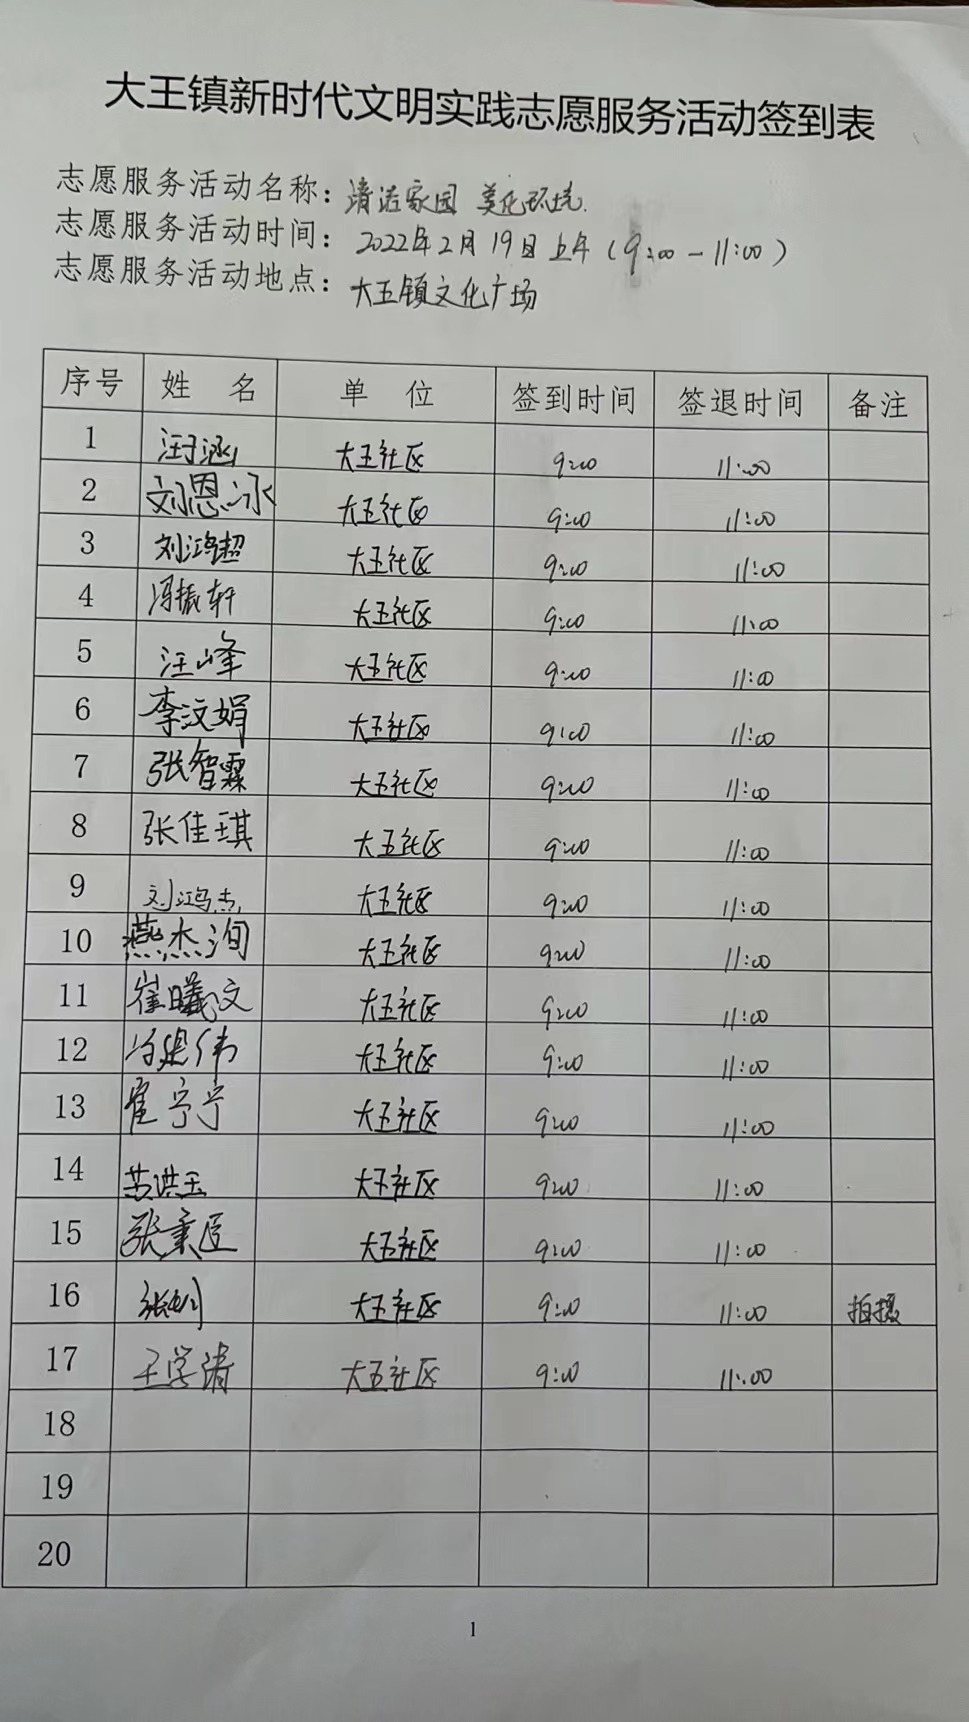 大王镇新时代文明实践志愿服务活动签到表
志愿服务活动名称：清洁家园 美化环境.
志愿服务活动时间：2022年2月19日上午（9:00-11:00）
志愿服务活动地点：大王镇文化广场
序号 姓名 单位 签到时间 签退时间 备注
1 汪涵 大王社区 9:00 11:00
2 刘恩泳 大王社区 9:00 11:00
3 刘鸿超 大王社区 9:00 11:00
4 冯振轩 大王社区 9:00 11:00
5 汪峰 大王社区 9:00 11:00
6 李汶娟 大王社区 9:00 11:00
7 张智霖 大王社区 9:00 11:00
8 张佳琪 大王社区 9:00 11:00
9 刘鸿杰 大王社区 9:00 11:00
10 燕杰洵 大王社区 9:00 11:00
11 崔曦文 大王社区 9:00 11:00
12 大王社区 9:00 11:00
13 宁宁 大王社区 9:00 11:00
14 洪玉 大王社区 9:00 11:00
15 张秉臣 大王社区 9:00 11:00
16 大王社区 9:00 11:00 拍摄
17 王学涛 大王社区 9:00 11:00
18
19
20
1